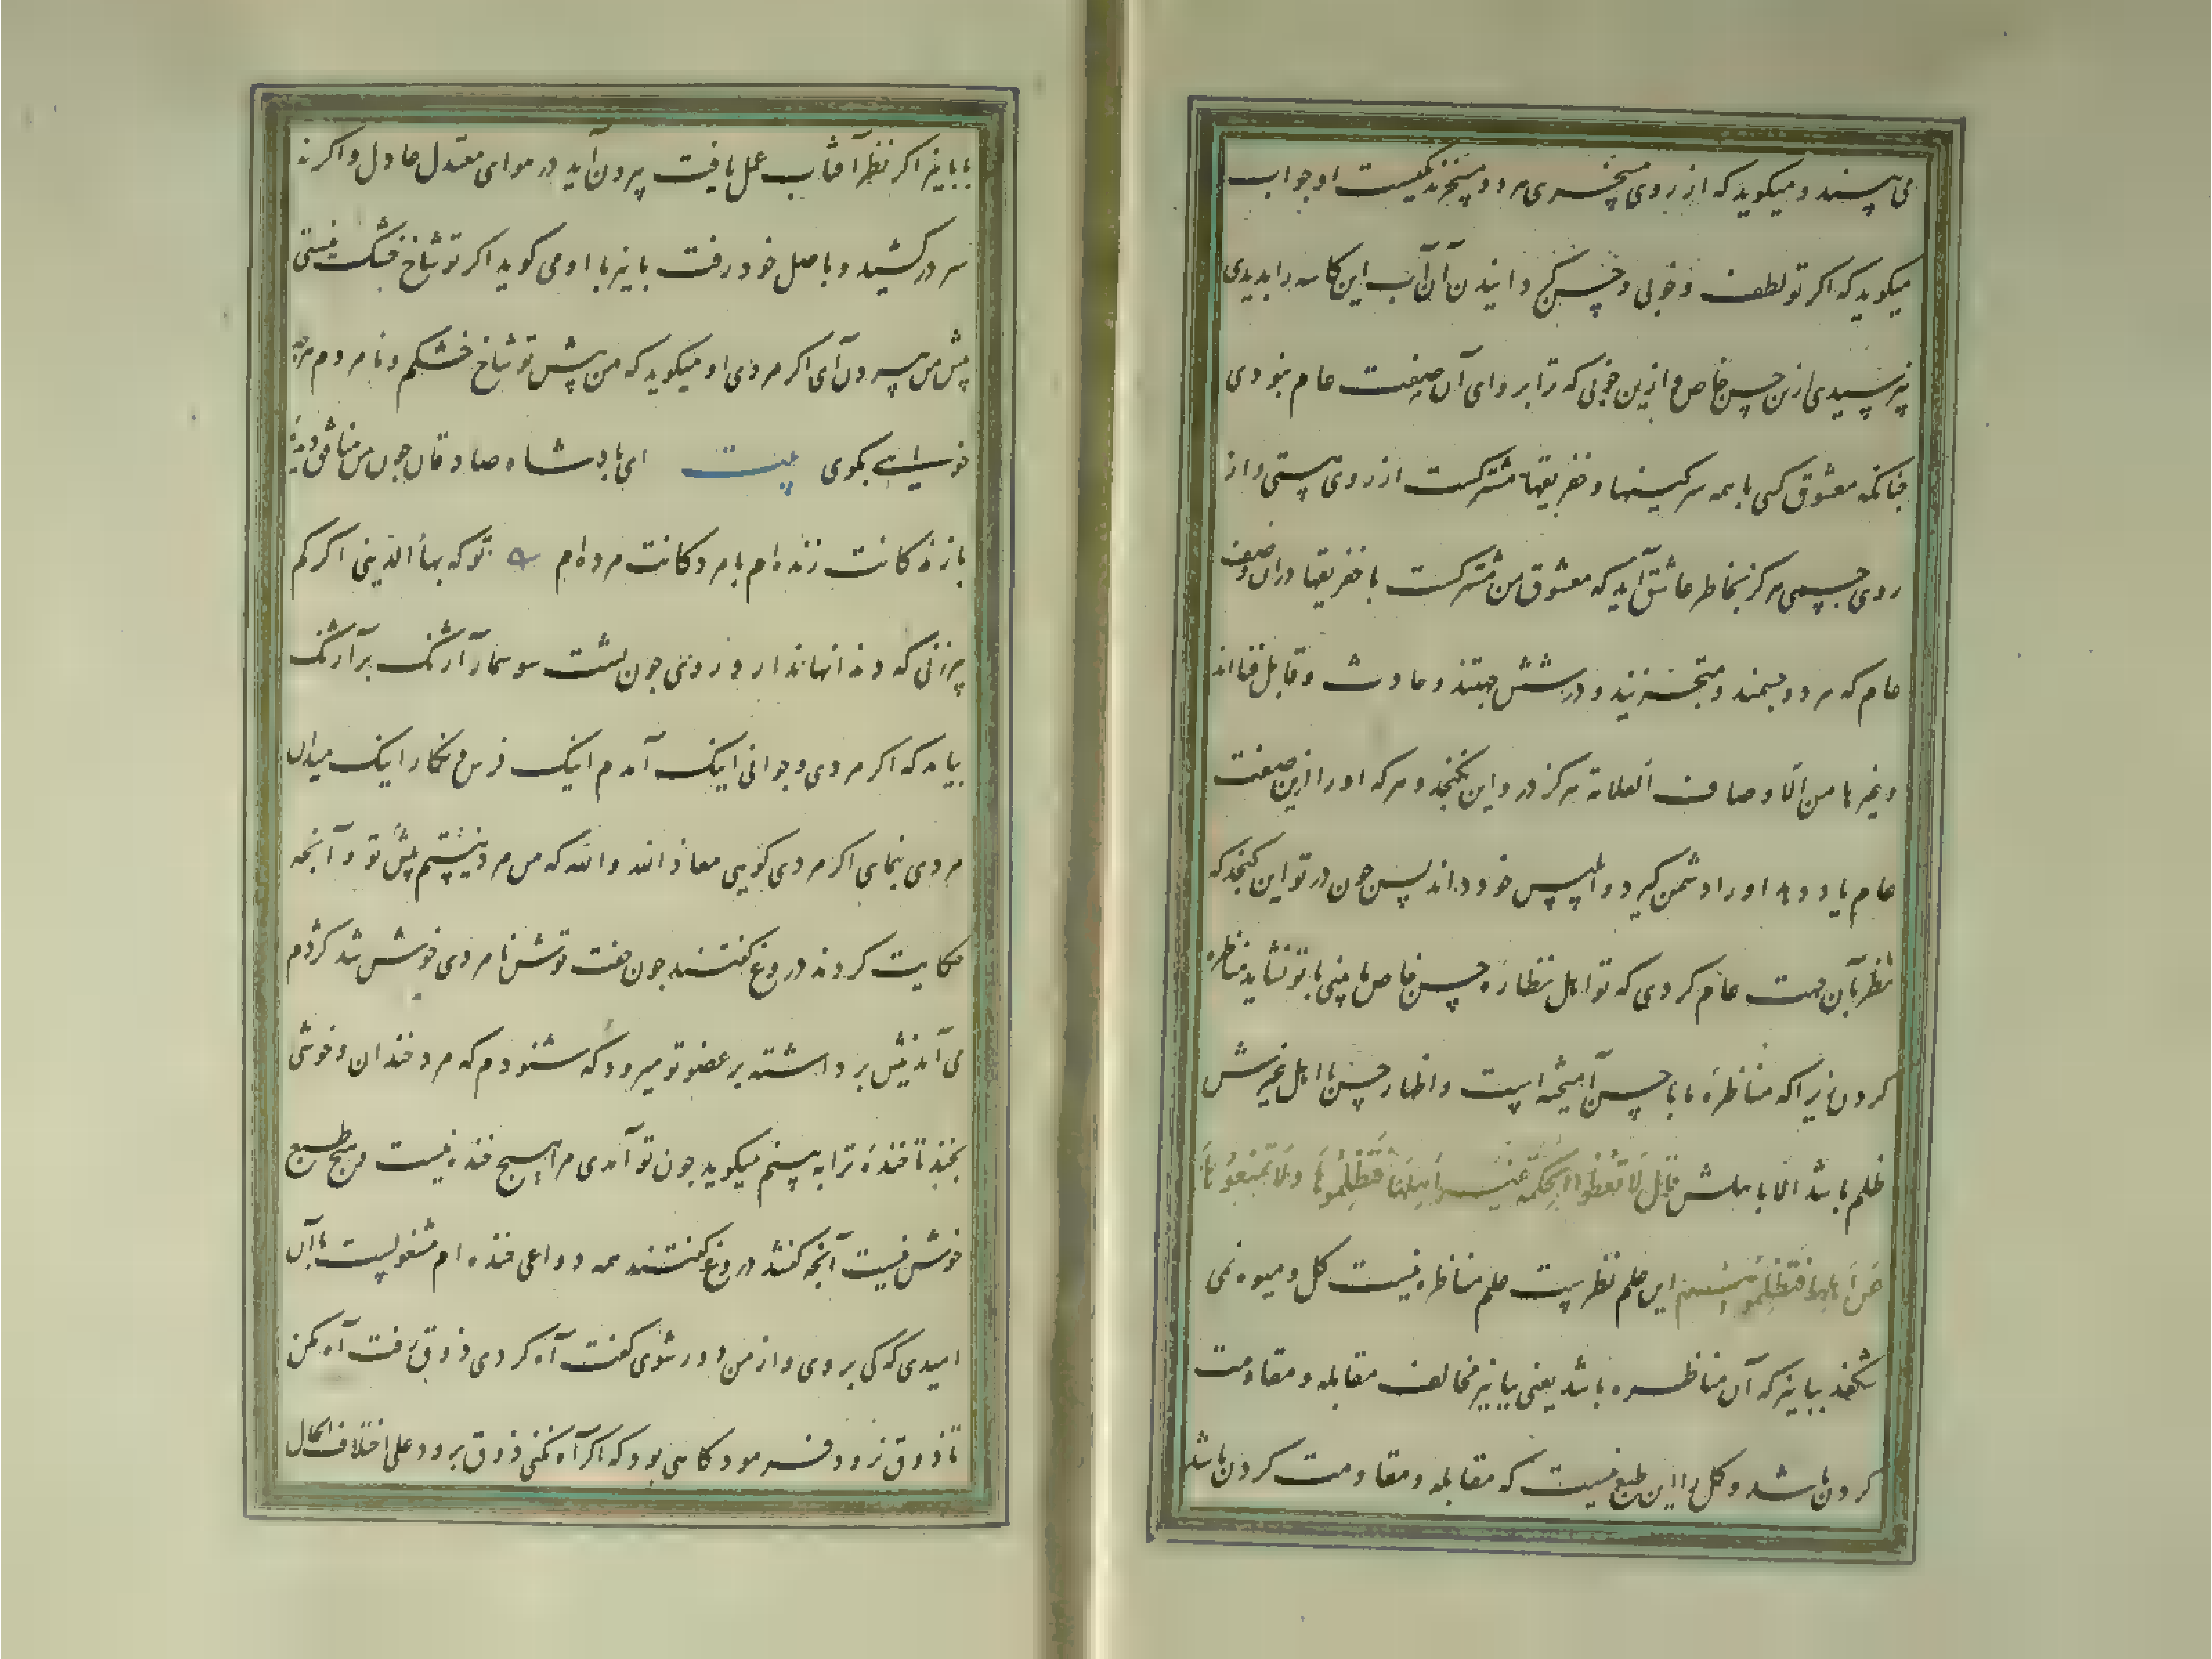 می‌بیند و میکوید که از روی مسخری مر دو مسخرند نکیست او جواب
میکوید که اکر تو لطف و خوبی و حسن کرداینیدن آن آب این کاسه را بدیدی
نپرسیدی ازین حسن خاص و ازین خوبی که ترا پروای آن صفت عام نبودی
چنانکه معشوق کسی با همه سرکینها و خفریقها مشترکست از روی هستی و از
روی جسمی هرکز بخاطر عاشق آید که معشوق من مشترکست با خفریقها در آن وصف
عام که هر دو جسمند و متحیزند و در شش جهتند و حادث و قابل فنااند
و غیرها من الاوصاف العامة هرکز در و این نکنجد و هرکه او را ازین صفت
عام یاد دهد او را دشمن کیرد و ابلیس خود داند پس چون در تو این کنجد که
نظر بآن جهت عام کردی که تو اهل نظارهٔ حسن خاص ما نیی با تو نشاید مناظره
کردن زیرا که مناظرهٔ ما با حسن آمیخته است و اظهار حسن با اهل غیرش
ظلم باشد الا با هلش قال لا تعطوا الحکمة غیر اهلها فتظلموها و لا تمنعوها
عن اهلها فتظلموهم این علم نظرست علم مناظره نیست کل و میوه نمی
شکفد بپاییز که آن مناظره باشد یعنی پاییز مخالف مقابله و مقاومت
کردن باشد و کل را این طبع نیست که مقابله و مقاومت کردن باشد
با پاییز اکر نظر آفتاب عمل یافت بیرون آید در هوای معتدل عادل و اکر نه
سر درکشید و با اصل خود رفت پاییز با او می کوید اکر تو شاخ خشک نیستی
پیش من بیرون آی اکر مردی او میکوید که من پیش تو شاخ خشکم و نامردم هرچه
خواهی بکوی بیت ای پادشاه صادقان چون من منافق دیدهٔ
با زندکانت زنده‌ام با مردکانت مرده‌ام ه تو که بهاء الدینی اکر کم
پیرزنی که دندانها ندارد و روی چون پشت سوسمار آژنک بر آژنک
بیاید که اکر مردی و جوانی اینک آمدم اینک فرس و نکار اینک میدان
مردی بنمای اکر مردی کویی معاذ الله و الله که من مرد نیستم پیش تو و آنچه
حکایت کردند دروغ کفتند چون جفت توش نامردی خوش شد کژدم
می آید نیش برداشته بر عضو تو میرود که شنودم که مرد خندان و خوشی
بخند تا خندهٔ ترا ببینم میکوید چون تو آمدی مرا هیچ خنده نیست و هیچ طبع
خوش نیست آنچه کفتند دروغ کفتند همه دواعی خنده ام مشغولست بآن
امیدی که کی بروی و از من دور شوی کفت آه کردی ذوق رفت آه مکن
تا ذوق نرود فرمود کاهی بود که اکر آه نکنی ذوق برود علی اختلاف الحال